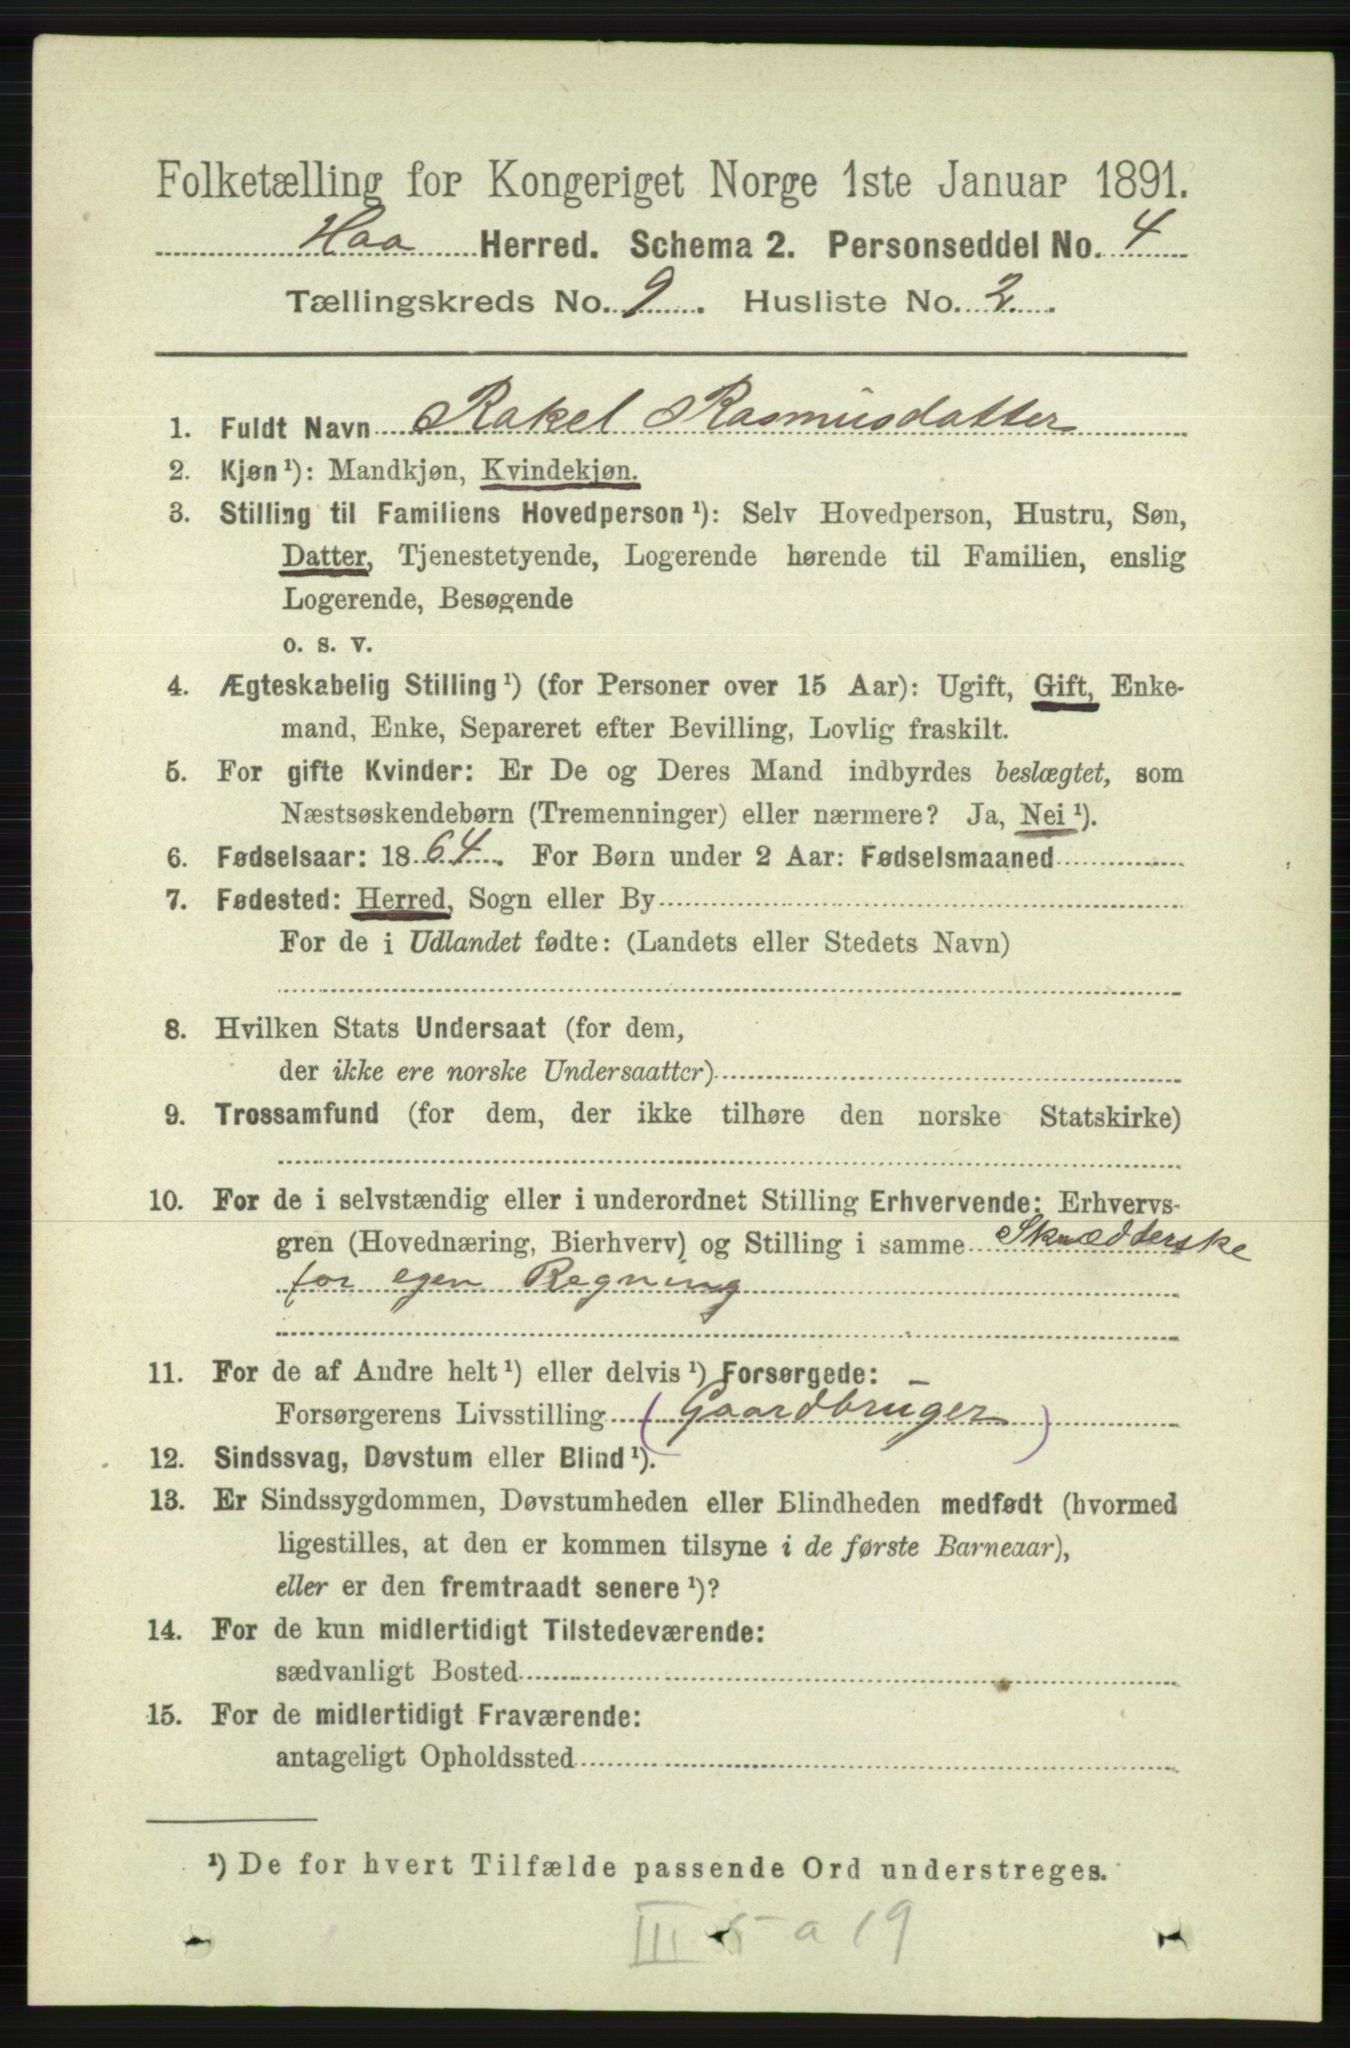 Folketælling for Kongeriget Norge 1ste Januar 1891.
Haa Herred. Schema 2. Personseddel No. 4
Tællingskreds No. 9. Husliste No. 2.
1. Fuldt Navn Rakel Rasmusdatter
2. Kjøn¹): Mandkjøn, Kvindekjøn.
3. Stilling til Familiens Hovedperson¹): Selv Hovedperson, Hustru, Søn,
Datter, Tjenestetyende, Logerende hørende til Familien, enslig
Logerende, Besøgende
o. s. v.
4. Ægteskabelig Stilling¹) (for Personer over 15 Aar): Ugift, Gift, Enke-
mand, Enke, Separeret efter Bevilling, Lovlig fraskilt.
5. For gifte Kvinder: Er De og Deres Mand indbyrdes beslægtet, som
Næstsøskendebørn (Tremenninger) eller nærmere? Ja, Nei¹).
6. Fødselsaar: 1864. For Børn under 2 Aar: Fødselsmaaned
7. Fødested: Herred, Sogn eller By
For de i Udlandet fødte: (Landets eller Stedets Navn)
8. Hvilken Stats Undersaat (for dem,
der ikke ere norske Undersaatter)
9. Trossamfund (for dem, der ikke tilhøre den norske Statskirke)
10. For de i selvstændig eller i underordnet Stilling Erhvervende: Erhvervs-
gren (Hovednæring, Bierhverv) og Stilling i samme Skrædderske
for egen Regning
11. For de af Andre helt¹) eller delvis¹) Forsørgede:
Forsørgerens Livsstilling (Gaardbruger)
12. Sindssvag, Døvstum eller Blind¹).
13. Er Sindssygdommen, Døvstumheden eller Blindheden medfødt (hvormed
ligestilles, at den er kommen tilsyne i de første Barneaar),
eller er den fremtraadt senere¹)?
14. For de kun midlertidigt Tilstedeværende:
sædvanligt Bosted
15. For de midlertidigt Fraværende:
antageligt Opholdssted
¹) De for hvert Tilfælde passende Ord understreges.
III 5 a 19